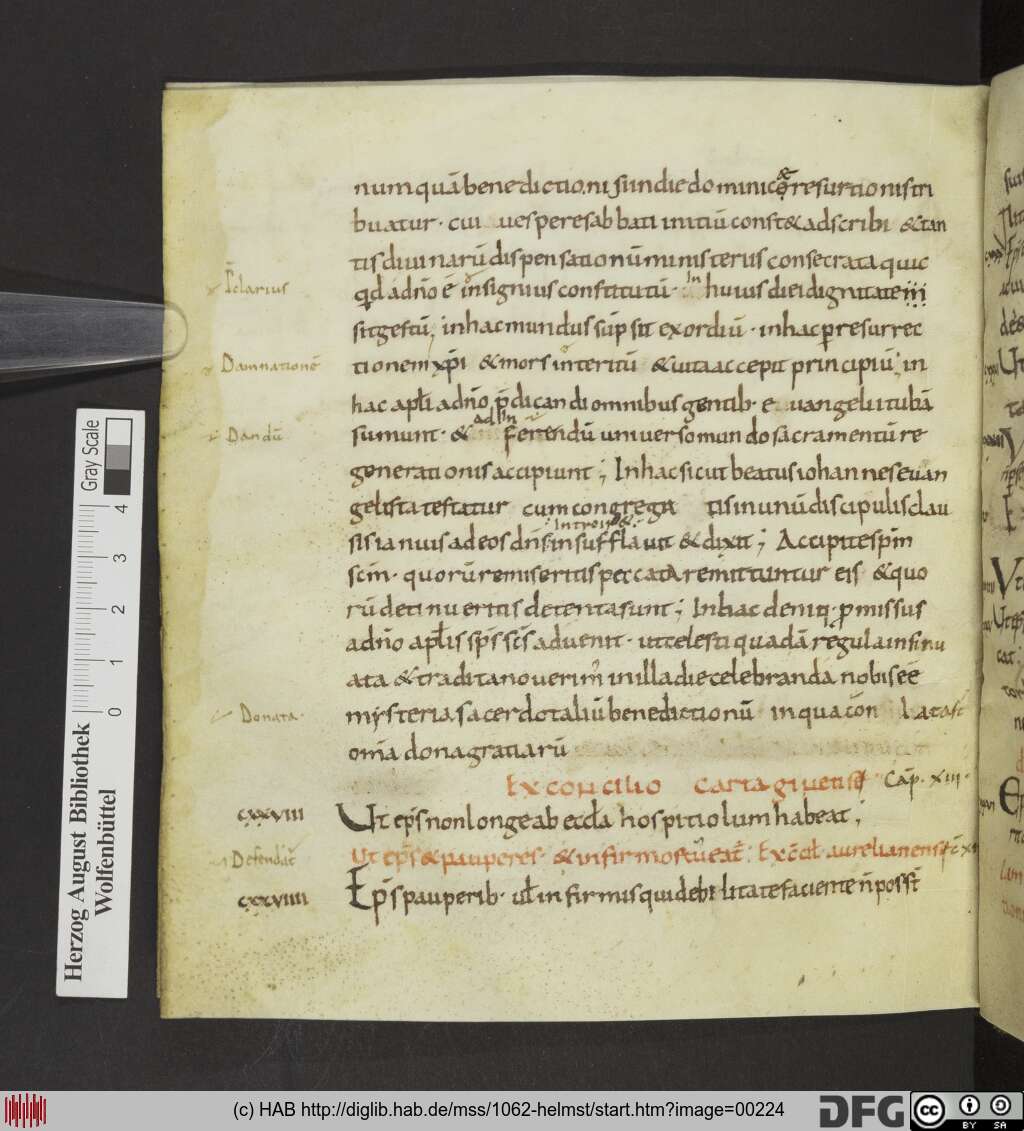 num quā benedictioni sun die dominicę resurtionis tri
buatur · cui vespere sabbati initiū const& adscribi &tan
tis diuinarū dispensationū ministeriis consecrata quic
qd a dño ē insignius constitutū · In huius diei dignitate
Iclarius
sit gestū; in hac mundus sūpsit exordiū · in hac p resurrec
tionem xp̄i & mors interitū & uita accepit principiū; in
Damnationē
hac apłi a dño p̄dicandi omnibus gentib· euangelii tubā
sumunt · & adIn ferendū uniuerso mundo sacramentū re
Dandū
generationis accipiunt; In hac sicut beatus iohannes euan
gelista testatur cum congrega tis in unū discipulis clau
sis ianuis ad eos dn̄s Introisset · insufflauit & dixit; Accipite sp̄m
sc̄m · quorū remiseritis peccata remittuntur eis & quo
rū detinueritis detenta sunt; In hac deniq· pmissus
a dño apłis sp̄s sc̄s aduenit · ut celesti quadā regula insinu
ata & tradita noverim' in illa die celebranda nobis eē
mysteria sacerdotaliū benedictionū in qua cōn lata st
Donata·
omīa dona gratiarū
Ex concilio cartaginensi Cap̄· XIII·
CXXVIII Ut ep̄s non longe ab eccła hospitiolum habeat;
Defendat̄
Ut ep̄s & pauperes · & infirmos tueat̄· Ex c̄cil· aurelianensi c̄ XI
CXXVIIII Ep̄s pauperib· uł infirmis qui debilitate faciente n̄ poss̄t
Gray Scale
0 1 2 3 4
Herzog August Bibliothek
Wolfenbüttel
(c) HAB http://diglib.hab.de/mss/1062-helmst/start.htm?image=00224
DFG
cc BY SA